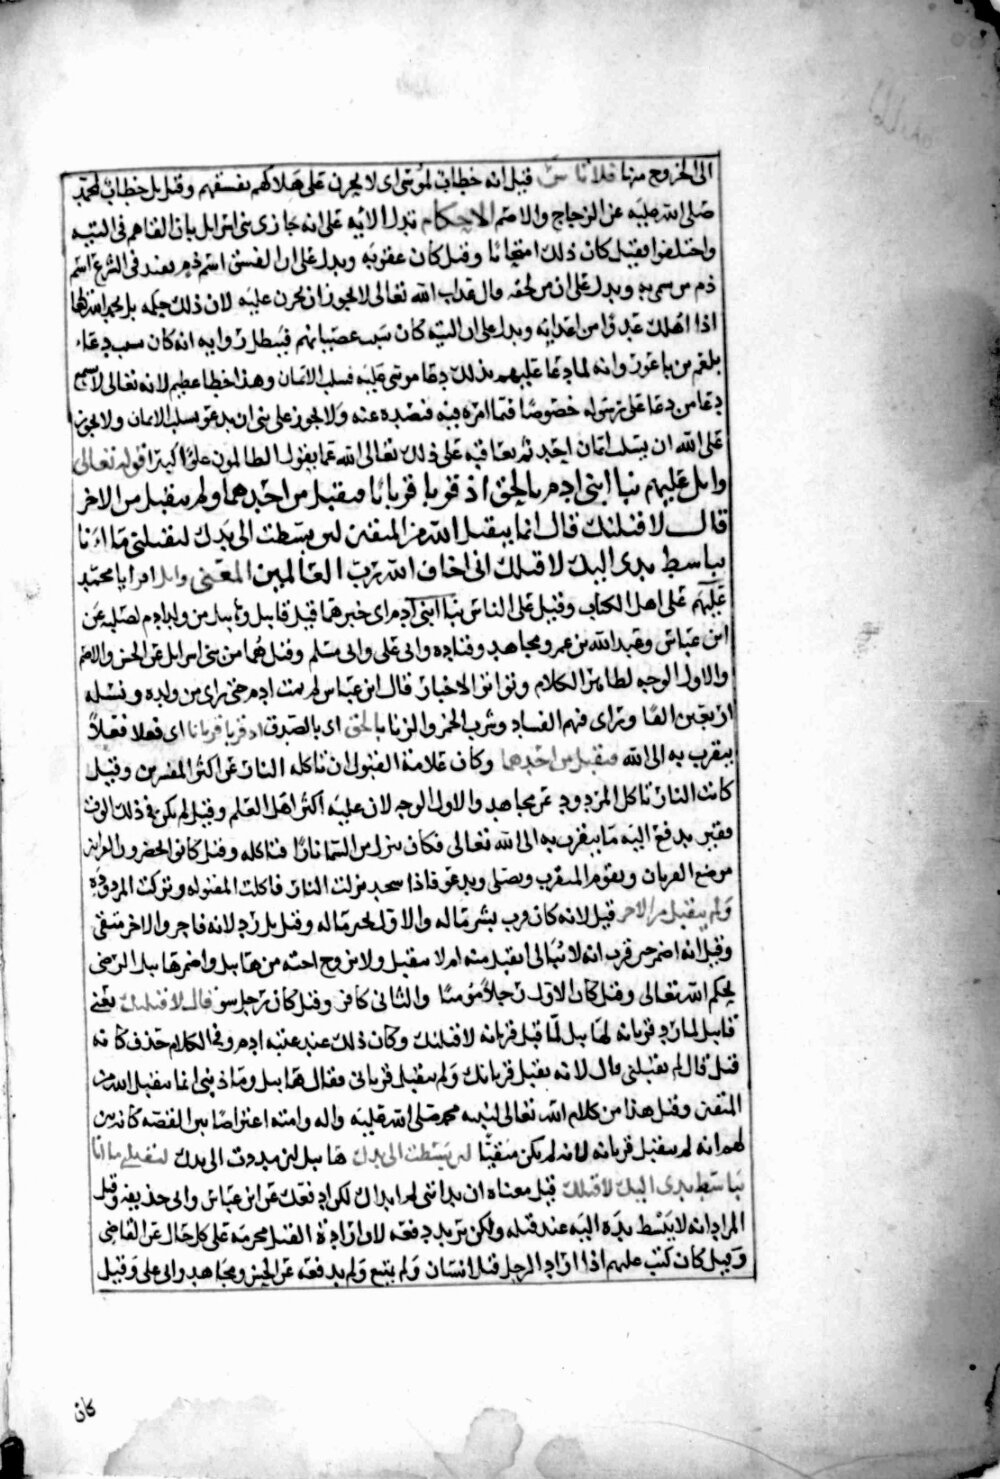 الى الخروج منها فلا تاس قيل انه خطاب لموسى اى لا يحزن على هلاكهم بفسقهم وقيل بل خطاب لمحمد
صلى الله عليه عن الزجاج والاصم الاحكام تدل الايه على انه جازى بنى اسرايل بان القاهم فى التيه
واختلفوا فقيل كان ذلك امتحانا وقيل كان عقوبه ويدل على ان الفسق اسم ذم يفيد فى الشرع اسم
ذم من سمى به ويدل على ان من لحقه عذاب الله تعالى لا يجوز ان يحزن عليه لان ذلك حكمه بل يحمد الله
اذا اهلك عدوا من اعدايه ويدل على ان التيه كان بسبب عصيانهم فيبطل روايه انه كان سبب دعاء
بلعم بن باعور وانه لما دعا عليهم بذلك دعا موسى عليه فسلب الايمان وهذا خطا عظيم لانه تعالى لا يسمع
دعا من دعا على رسوله خصوصا فيما امره فيه فنصده عنه ولا يجوز على نبى ان يدعو بسلب الايمان ولا يجوز
على الله ان يسلب ايمان احد ثم يعاقبه على ذلك تعالى الله عما يقول الظالمون علوا كبيرا قوله تعالى
واتل عليهم نبا ابنى ادم بالحق اذ قربا قربانا فتقبل من احدهما ولم يتقبل من الاخر
قال لاقتلنك قال انما يتقبل الله من المتقين لين بسطت الى يدك لتقتلنى ما انا
بباسط يدى اليك لاقتلك انى اخاف الله رب العالمين المعنى واتل اقرا يا محمد
عليهم على اهل الكتاب وقيل على الناس نبا ابنى آدم اى خبرهما قيل قابيل وهابيل من ولد ادم لصلبه عن
ابن عباس وعبد الله بن عمر ومجاهد وقتاده وابى على وابى مسلم وقيل هما من بنى اسرايل عن الحسن والاصم
والاول الوجه لظاهر الكلام وتواتر الاخبار قال ابن عباس لم يمت ادم حتى راى من ولده ونسله
اربعين الفا وراى فيهم الفساد وشرب الخمر والزنا بالحق اى بالصدق اذ قربا قربانا اى فعلا فعلا
يتقرب به الى الله فتقبل من احدهما وكان علامة القبول ان تاكله النار عن اكثر المفسرين وقيل
كانت النار تاكل المردود عن مجاهد والاول الوجه لان عليه اكثر اهل العلم وقيل لم يكن فى ذلك الوقت
فقير يدفع اليه ما يتقرب به الى الله تعالى فكان ينزل من السما نارا فتاكله وقيل كانوا يحضرون القرابين
موضع القربان ويقوم المتقرب ويصلى ويدعو فاذا سجد نزلت النار فاكلت المقبوله وتركت المردوده
ولم يتقبل من الاخر قيل لانه كان قرب بشر ماله والاول بخير ماله وقيل بل رد لانه فاجر والاخر متقى
وقيل انه اضمر حين قرب انه لا يبالى ايقبل منه ام لا يتقبل ولا يزوج اخته من هابيل واضمر هابيل الرضى
بحكم الله تعالى وقيل كان الاول رجلا مومنا والثانى كافر وقيل كان رجل سو قال لاقتلنك يعنى
قابيل لما رد قربانه لهابيل لما قبل قربانه لاقتلنك وكان ذلك عند غيبه ادم وفى الكلام حذف كانه
قيل قال لم تقتلنى قال لانه تقبل قربانك ولم يتقبل قربانى فقال هابيل وما ذنبى انما يتقبل الله من
المتقين وقيل هذا من كلام الله تعالى لنبيه محمد صلى الله عليه واله وامته اعتراضا بين القصه كانه بين
لهم انه لم يتقبل قربانه لانه لم يكن متقيا لين بسطت الى يدك هابيل لين مددت الى يدك لتقتلنى ما انا
بباسط يدى اليك لاقتلك قيل معناه ان بداتنى لم ابداك لكن ادفعك عن ابن عباس وابى حذيفه وقيل
المراد انه لا يبسط يده اليه عند قتله ولكن يريد دفعه لان ارادة القتل محرمه على كل حال عن القاضى
وقيل كان كتب عليهم اذا اراد الرجل قتل انسان ولم يمتنع ولم يدفعه عن الحسن ومجاهد وابى على وقيل
كان